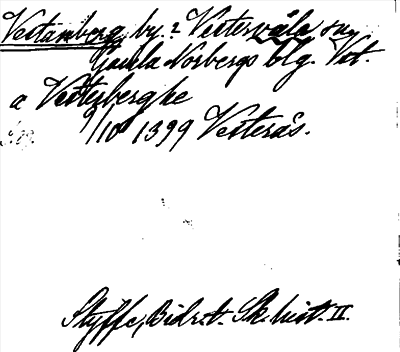 Vestanberg, by. i Västervåla sn,
Gamla Norbergs blg. Vstl.
a Vesterberghe
9/10 1399 Vesterås.
Styffe, Bidr. t. Sk. hist. II.